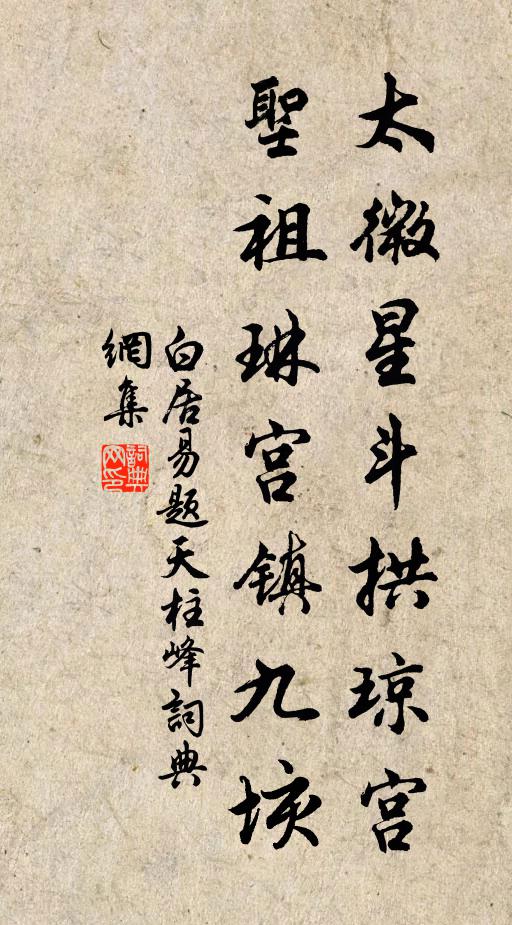 太微星斗拱琼宫
聖祖琳宫镇九垓
白居易题天柱峰詞典
網集
詞典
网印